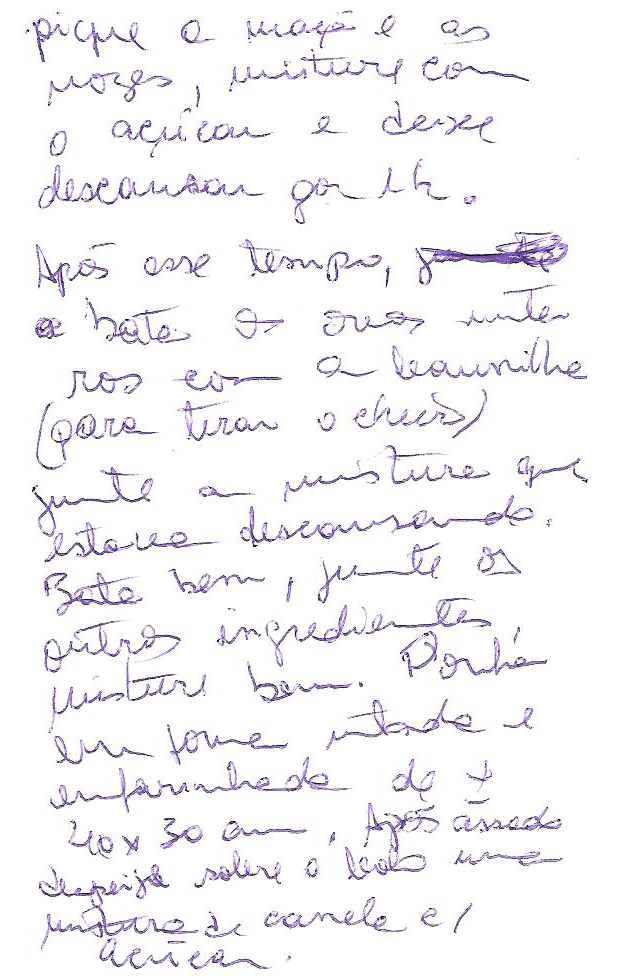 pique a maçã e as
nozes, misture com
o açúcar e deixe
descansar por 1h.
Após esse tempo,
bata os ovos intei
ros com a baunilha
(para tirar o cheiro)
junte a mistura que
estava descansando.
Bata bem, junte os
outros ingredientes,
misture bem. Ponha
em forma untada e
enfarinhada de ±
40x30 cm. Após assado
despeje sobre o bolo uma
mistura de canela c/
açúcar.